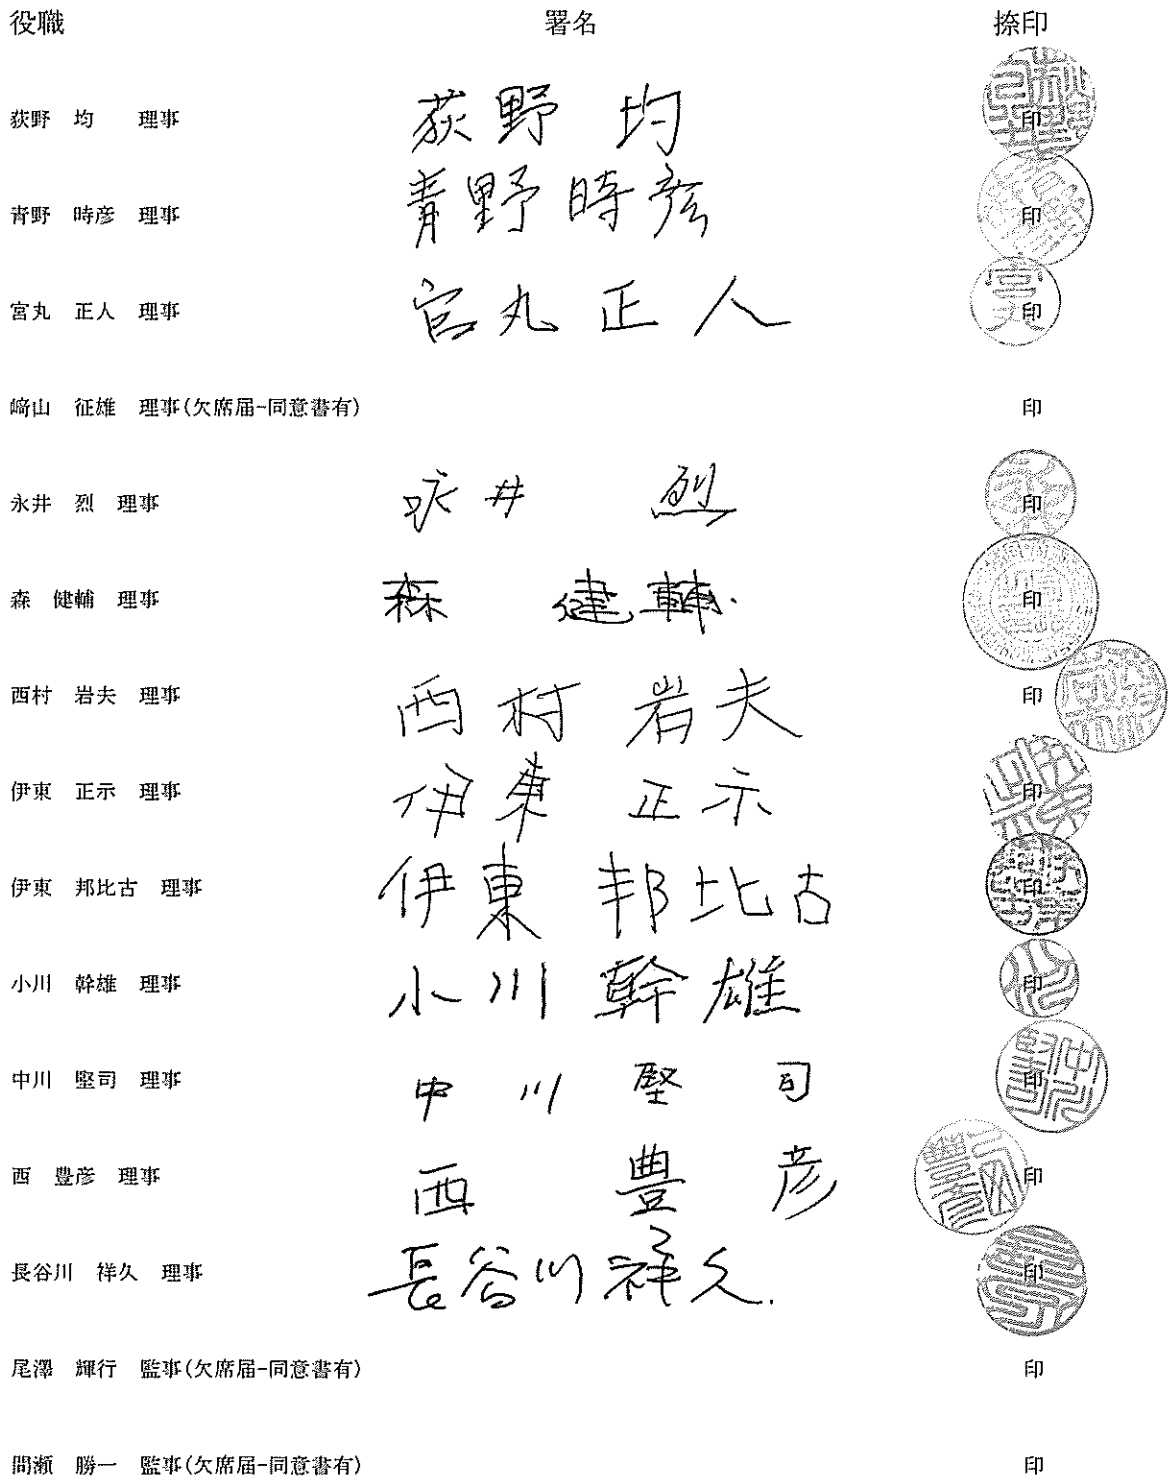 役職 署名 捺印
荻野 均 理事 荻野 均 印
青野 時彦 理事 青野 時彦 印
宮丸 正人 理事 宮丸 正人 印
﨑山 征雄 理事(欠席届-同意書有) 印
永井 烈 理事 永井 烈 印
森 健輔 理事 森 健輔 印
西村 岩夫 理事 西村 岩夫 印
伊東 正示 理事 伊東 正示 印
伊東 邦比古 理事 伊東 邦比古 印
小川 幹雄 理事 小川 幹雄 印
中川 堅司 理事 中川 堅司 印
西 豊彦 理事 西 豊彦 印
長谷川 祥久 理事 長谷川 祥久 印
尾澤 輝行 監事(欠席届-同意書有) 印
間瀬 勝一 監事(欠席届-同意書有) 印